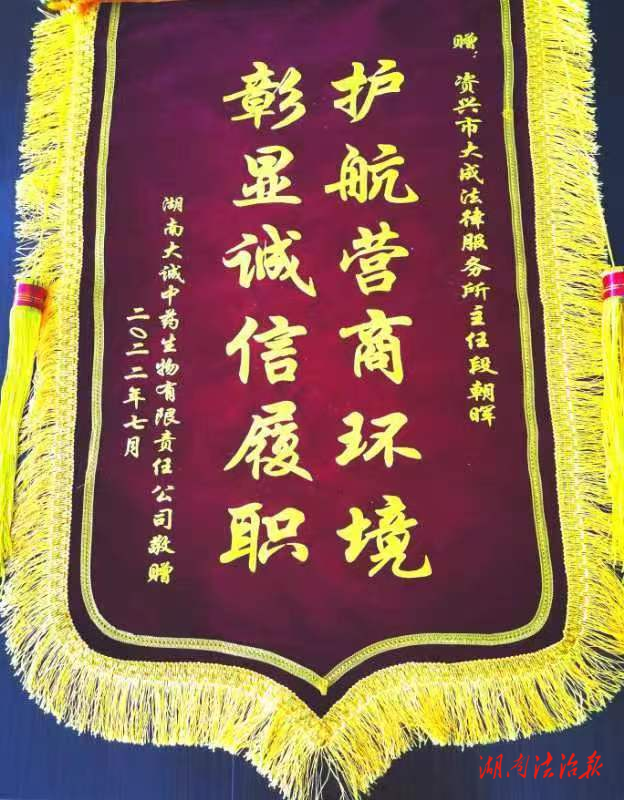 赠:资兴市大成法律服务所主任段朝晖
护航营商环境
彰显诚信履职
湖南大诚中药生物有限责任公司敬赠
二〇二二年七月
湖南法治报